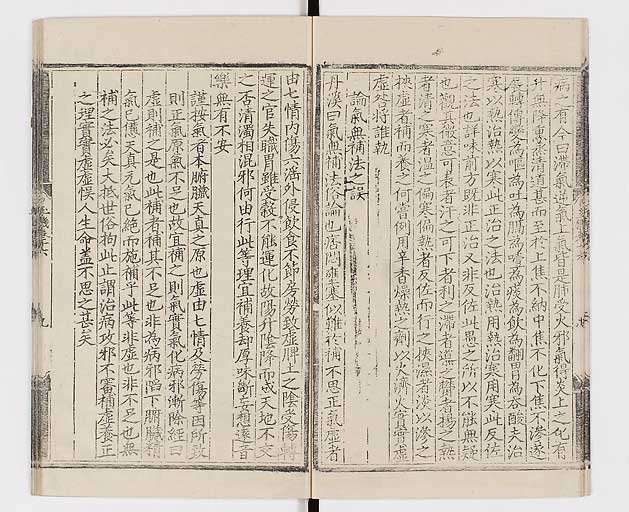 病之有今曰滯氣逆氣上氣皆是肺受火邪氣得炎上之化有
升無降熏蒸清道甚而至於上焦不納中焦不化下焦不滲遂
展轉傳變為嘔為吐為膈為噎為痰為飲為翻胃為吞酸夫治
寒以熱治熱以寒此正治之法也治熱用熱治寒用寒此反佐
之法也詳味前方既非正治又非反佐此愚之所以不能無疑
也觀其微意可表者汗之可下者利之滯者導之鬱者揚之熱
者清之寒者溫之偏寒偏熱者反佐而行之挾濕者淡以滲之
挾虛者補而養之何嘗例用辛香燥熱之劑以火濟火實實虛
虛咎將誰執
論氣無補法之誤
丹溪曰氣無補法俗論也痞悶壅塞似難於補不思正氣虛者
由七情內傷六淫外侵飲食不節房勞致虛脾土之陰受傷轉
運之官失職胃雖受穀不能運化故陽升陰降而成天地不交
之否清濁相混邪何由行此等理宜補養却厚味斷妄想遠音
樂無有不安
謹按氣者本腑臟天真之原也虛由七情及勞傷等因所致
則正氣原氣不足也故宜補之則氣實氣化病邪漸除經曰
虛則補之是也此補者補其不足也非為病邪陷下腑臟精
氣已憊天真元氣已絕而施補乎此等虛也非不足也無
補之法必矣大抵世俗拘此止謂治病攻邪不審補虛養正
之理實實虛虛悞人生命蓋不思之甚矣
九